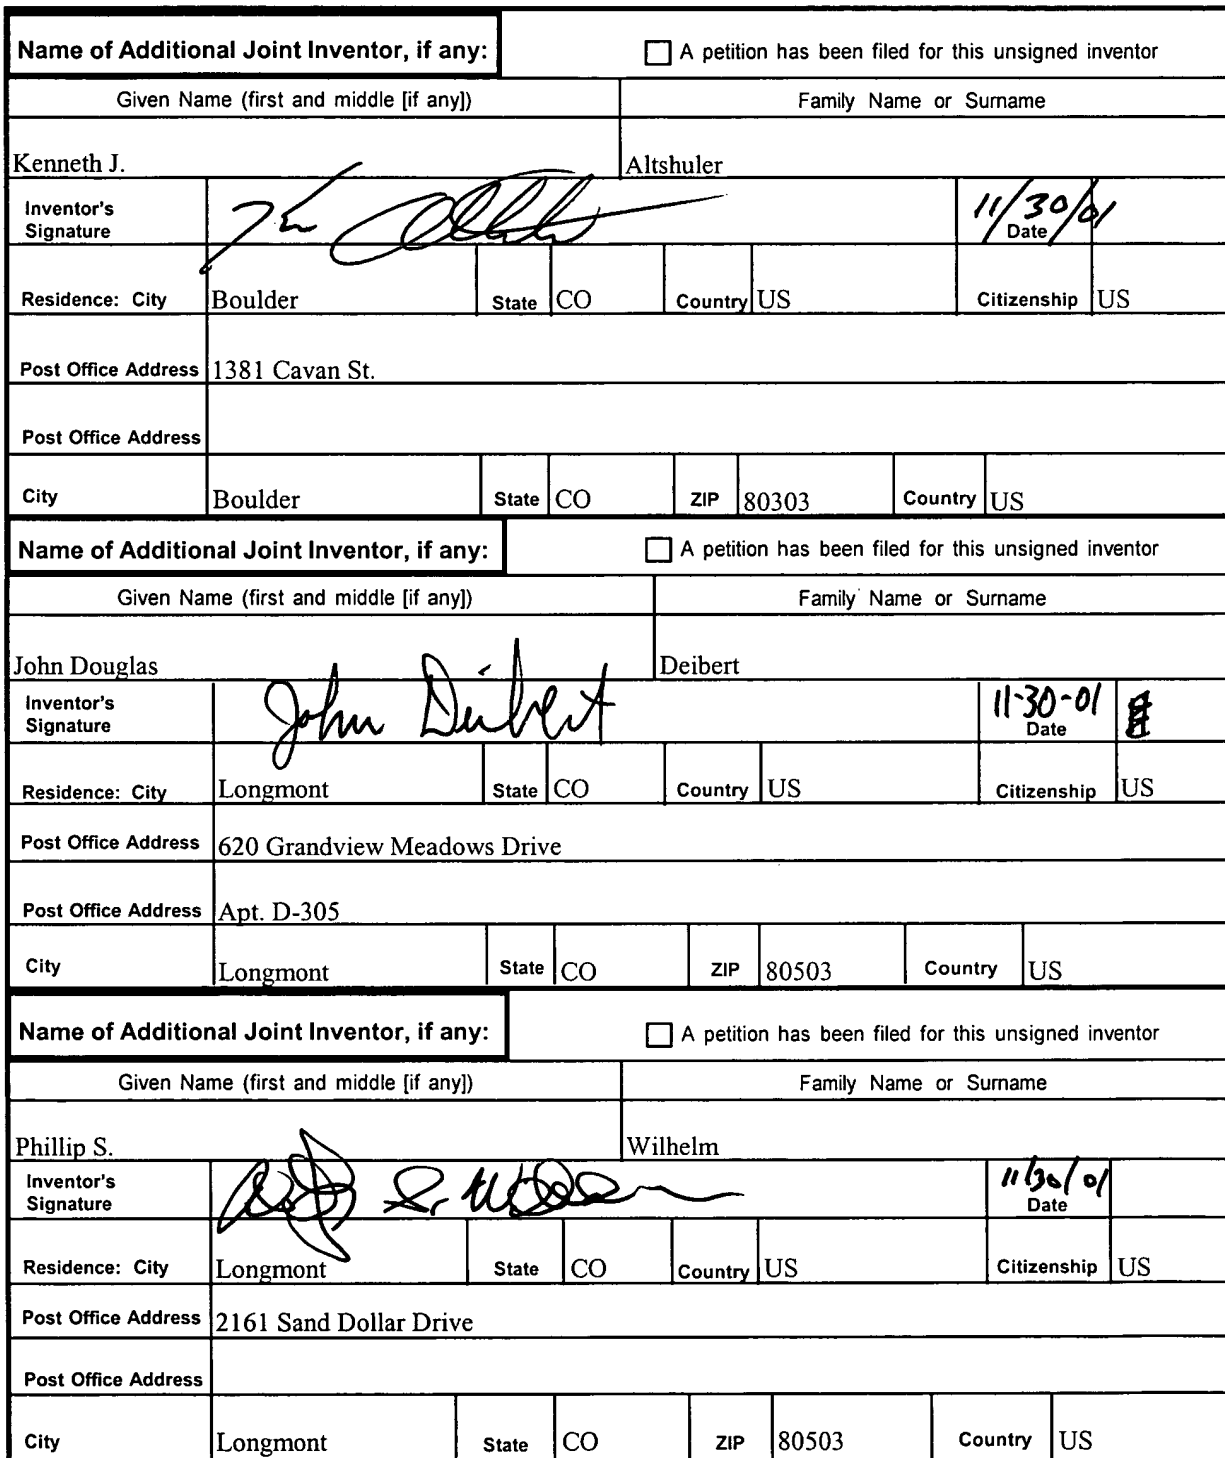 Name of Additional Joint Inventor, if any: A petition has been filed for this unsigned inventor
Given Name (first and middle [if any]) Family Name or Surname
Kenneth J. Altshuler
Inventor's Signature 11/30/01 Date
Residence: City Boulder State CO Country US Citizenship US
Post Office Address 1381 Cavan St.
Post Office Address
City Boulder State CO ZIP 80303 Country US
Name of Additional Joint Inventor, if any: A petition has been filed for this unsigned inventor
Given Name (first and middle [if any]) Family Name or Surname
John Douglas Deibert
Inventor's Signature John Deibert 11-30-01 Date
Residence: City Longmont State CO Country US Citizenship US
Post Office Address 620 Grandview Meadows Drive
Post Office Address Apt. D-305
City Longmont State CO ZIP 80503 Country US
Name of Additional Joint Inventor, if any: A petition has been filed for this unsigned inventor
Given Name (first and middle [if any]) Family Name or Surname
Phillip S. Wilhelm
Inventor's Signature 11/30/01 Date
Residence: City Longmont State CO Country US Citizenship US
Post Office Address 2161 Sand Dollar Drive
Post Office Address
City Longmont State CO ZIP 80503 Country US